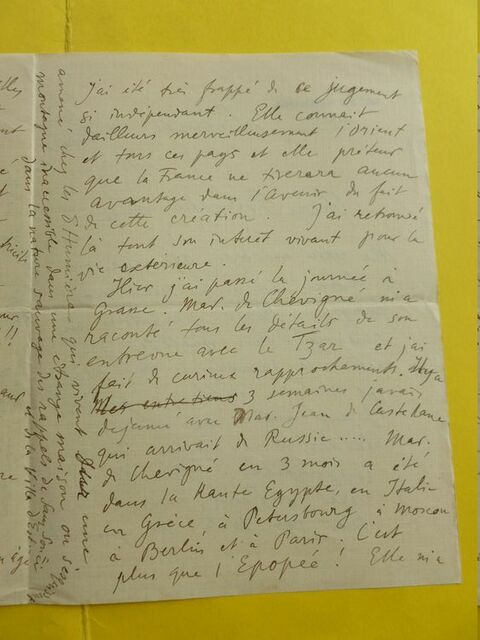 J'ai été très frappé de ce jugement
si indépendant. Elle connait
d'ailleurs merveilleusement l'Orient
et tous ces pays et elle
que la France ne tirera aucun
avantage dans l'Avenir du fait
de cette création. J'ai retrouvé
là tout son interet vivant pour la
vie extérieure.
Hier j'ai passé la journée à
Grasse. Mad. de Chevigné m'a
raconté tous les détails de son
entrevue avec le Tzar et j'ai
fait de curieux rapprochements. Il y a
Mes entretiens 3 semaines j'avais
dejeuné avec Mad. Jean de Castellane
qui arrivait de Russie..... Mad.
de Chevigné en 3 mois a été
dans la Haute Egypte, en Italie
en Grèce à Petersbourg à Moscou
à Berlin et à Paris. C'est
plus que l'Epopeé! Elle m'a
amené chez les d'Humières qui vivent dans une
montagne inaccessible dans une étrange maison où ses
dans la nature sauvage des rappels de Sans Souci
et de la Villa d'Este